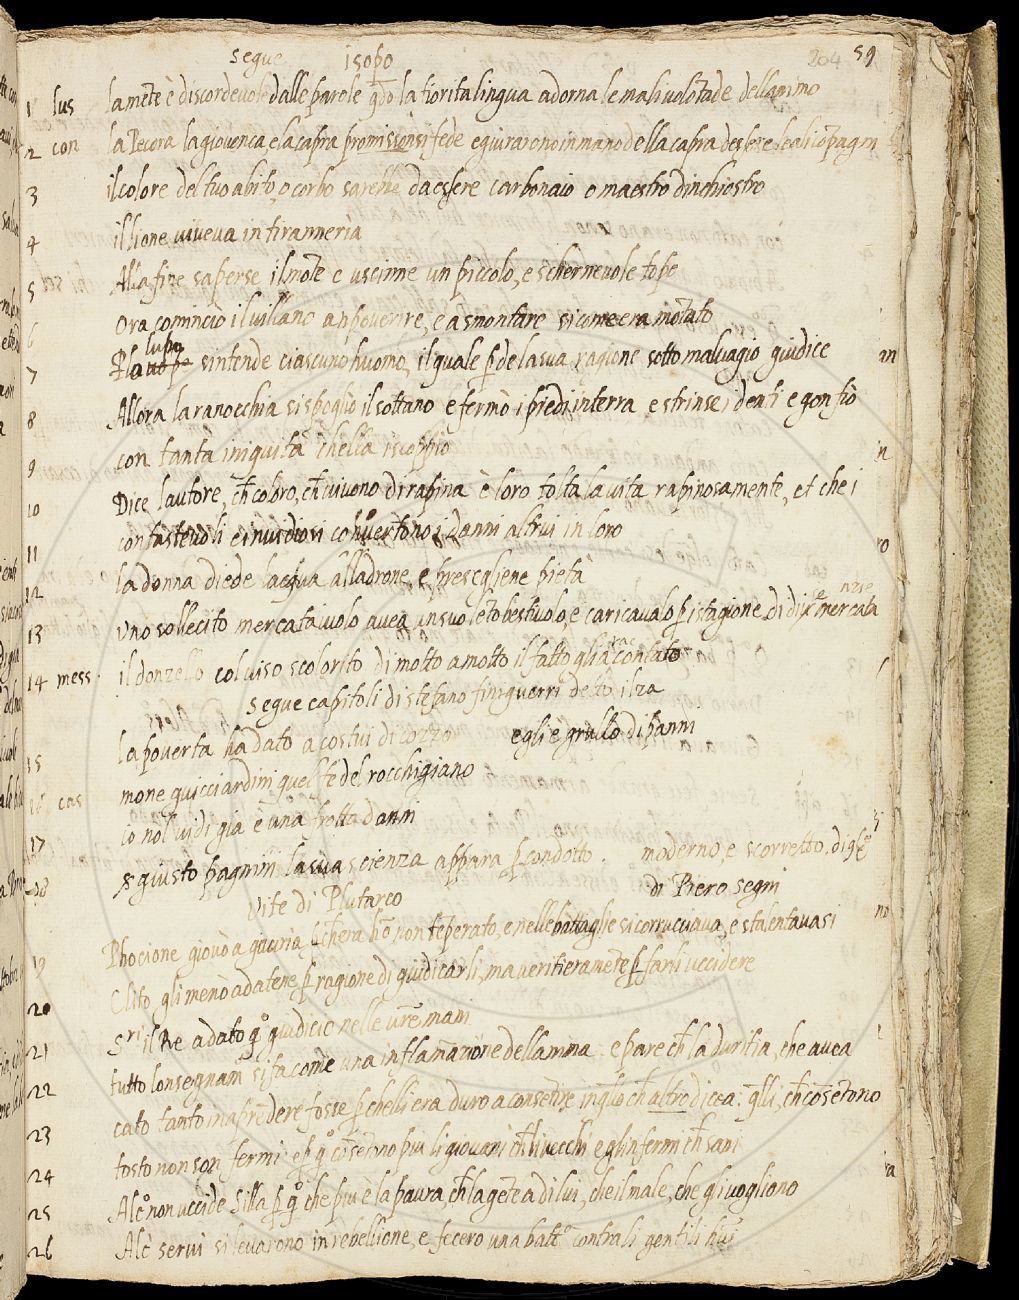 segue isopo
204 59
1 lus la mẽte è discordevole dalle parole q̃do la fiorita lingua adorna le malivolẽtade dell animo
2 con la Pecora la giovenca e la capra promissonsi fede e giurarono in mano della capra
3 il colore del tuo abito, o corbo sarebbe da essere carbonaio o maestro dinchiostro
4 il lione viveva in tiranneria
5 Alla fine saperse il mõte e uscinne un piccolo, e schernevole topo
6 Ora comincio il villano a appoverire, e a smontare sicome era mõtato
7 lupo sintende ciascuno huomo, il quale p̃de la sua ragione sotto malvagio giudice
8 Allora la ranocchia si spogliò il sottano e fermò i piedi in terra e strinse i denti e gonfiò
9 con tanta iniquità chella iscoppio
10 Dice lautore, ch̃ coloro, ch̃ vivono di rapina è loro tolta la vita rapinosamente, et che i
11 contastevoli e invidiosi convertono i danni altrui in loro
12 la donna diede lacqua al ladrone, e presegliene pietà
13 uno sollecito mercataiuolo avea un suo lẽto bestiuolo, e caricavalo p istagione di mercata nzie
14 mess. il donzello col viso scolorito di motto a motto il fatto gli à contato
segue capitoli di stefano finiguerri detto il za
15 la poverta ha dato a costui di cozzo egli è grullo di panni
16 cas mone guicciardini quel fe del rocchigiano
17 io nol vidi gia è una frotta danni
18 giusto pagnini la sua scienza appara p condotto. moderno, e scorretto, di
di Piero segni
Vite di Plutarco
19 Phocione giovò a giuria non tẽperato, e nelle battaglie si corrucciava, e stalentavasi
Clito gli menò ad atene p ragione di giudicarli, ma veritieramẽte p farli uccidere
20 Sri il Re a dato q̊ giudicio nelle vr̃e mani
21 tutto lonsegnam si fa come una inflamazione dellanima: e pare ch̃ la duritia, che avea
22 cato tanto in aprẽdere fosse p chelli era duro a consẽtire in q̃llo ch̃ altro dicea: q̃lli, ch̃ cõsẽtono
23 tosto non son fermi: e p q̊ cõsẽtono piu li giovani ch̃ li vecchi e gli infermi ch̃ sani
24 non uccide Silla p q̊ che piu è la paura, ch̃ la gẽte a di lui, che il male, che gli vogliono
25 servi si levarono in rebellione, e fecero una batt contra li gentili
26